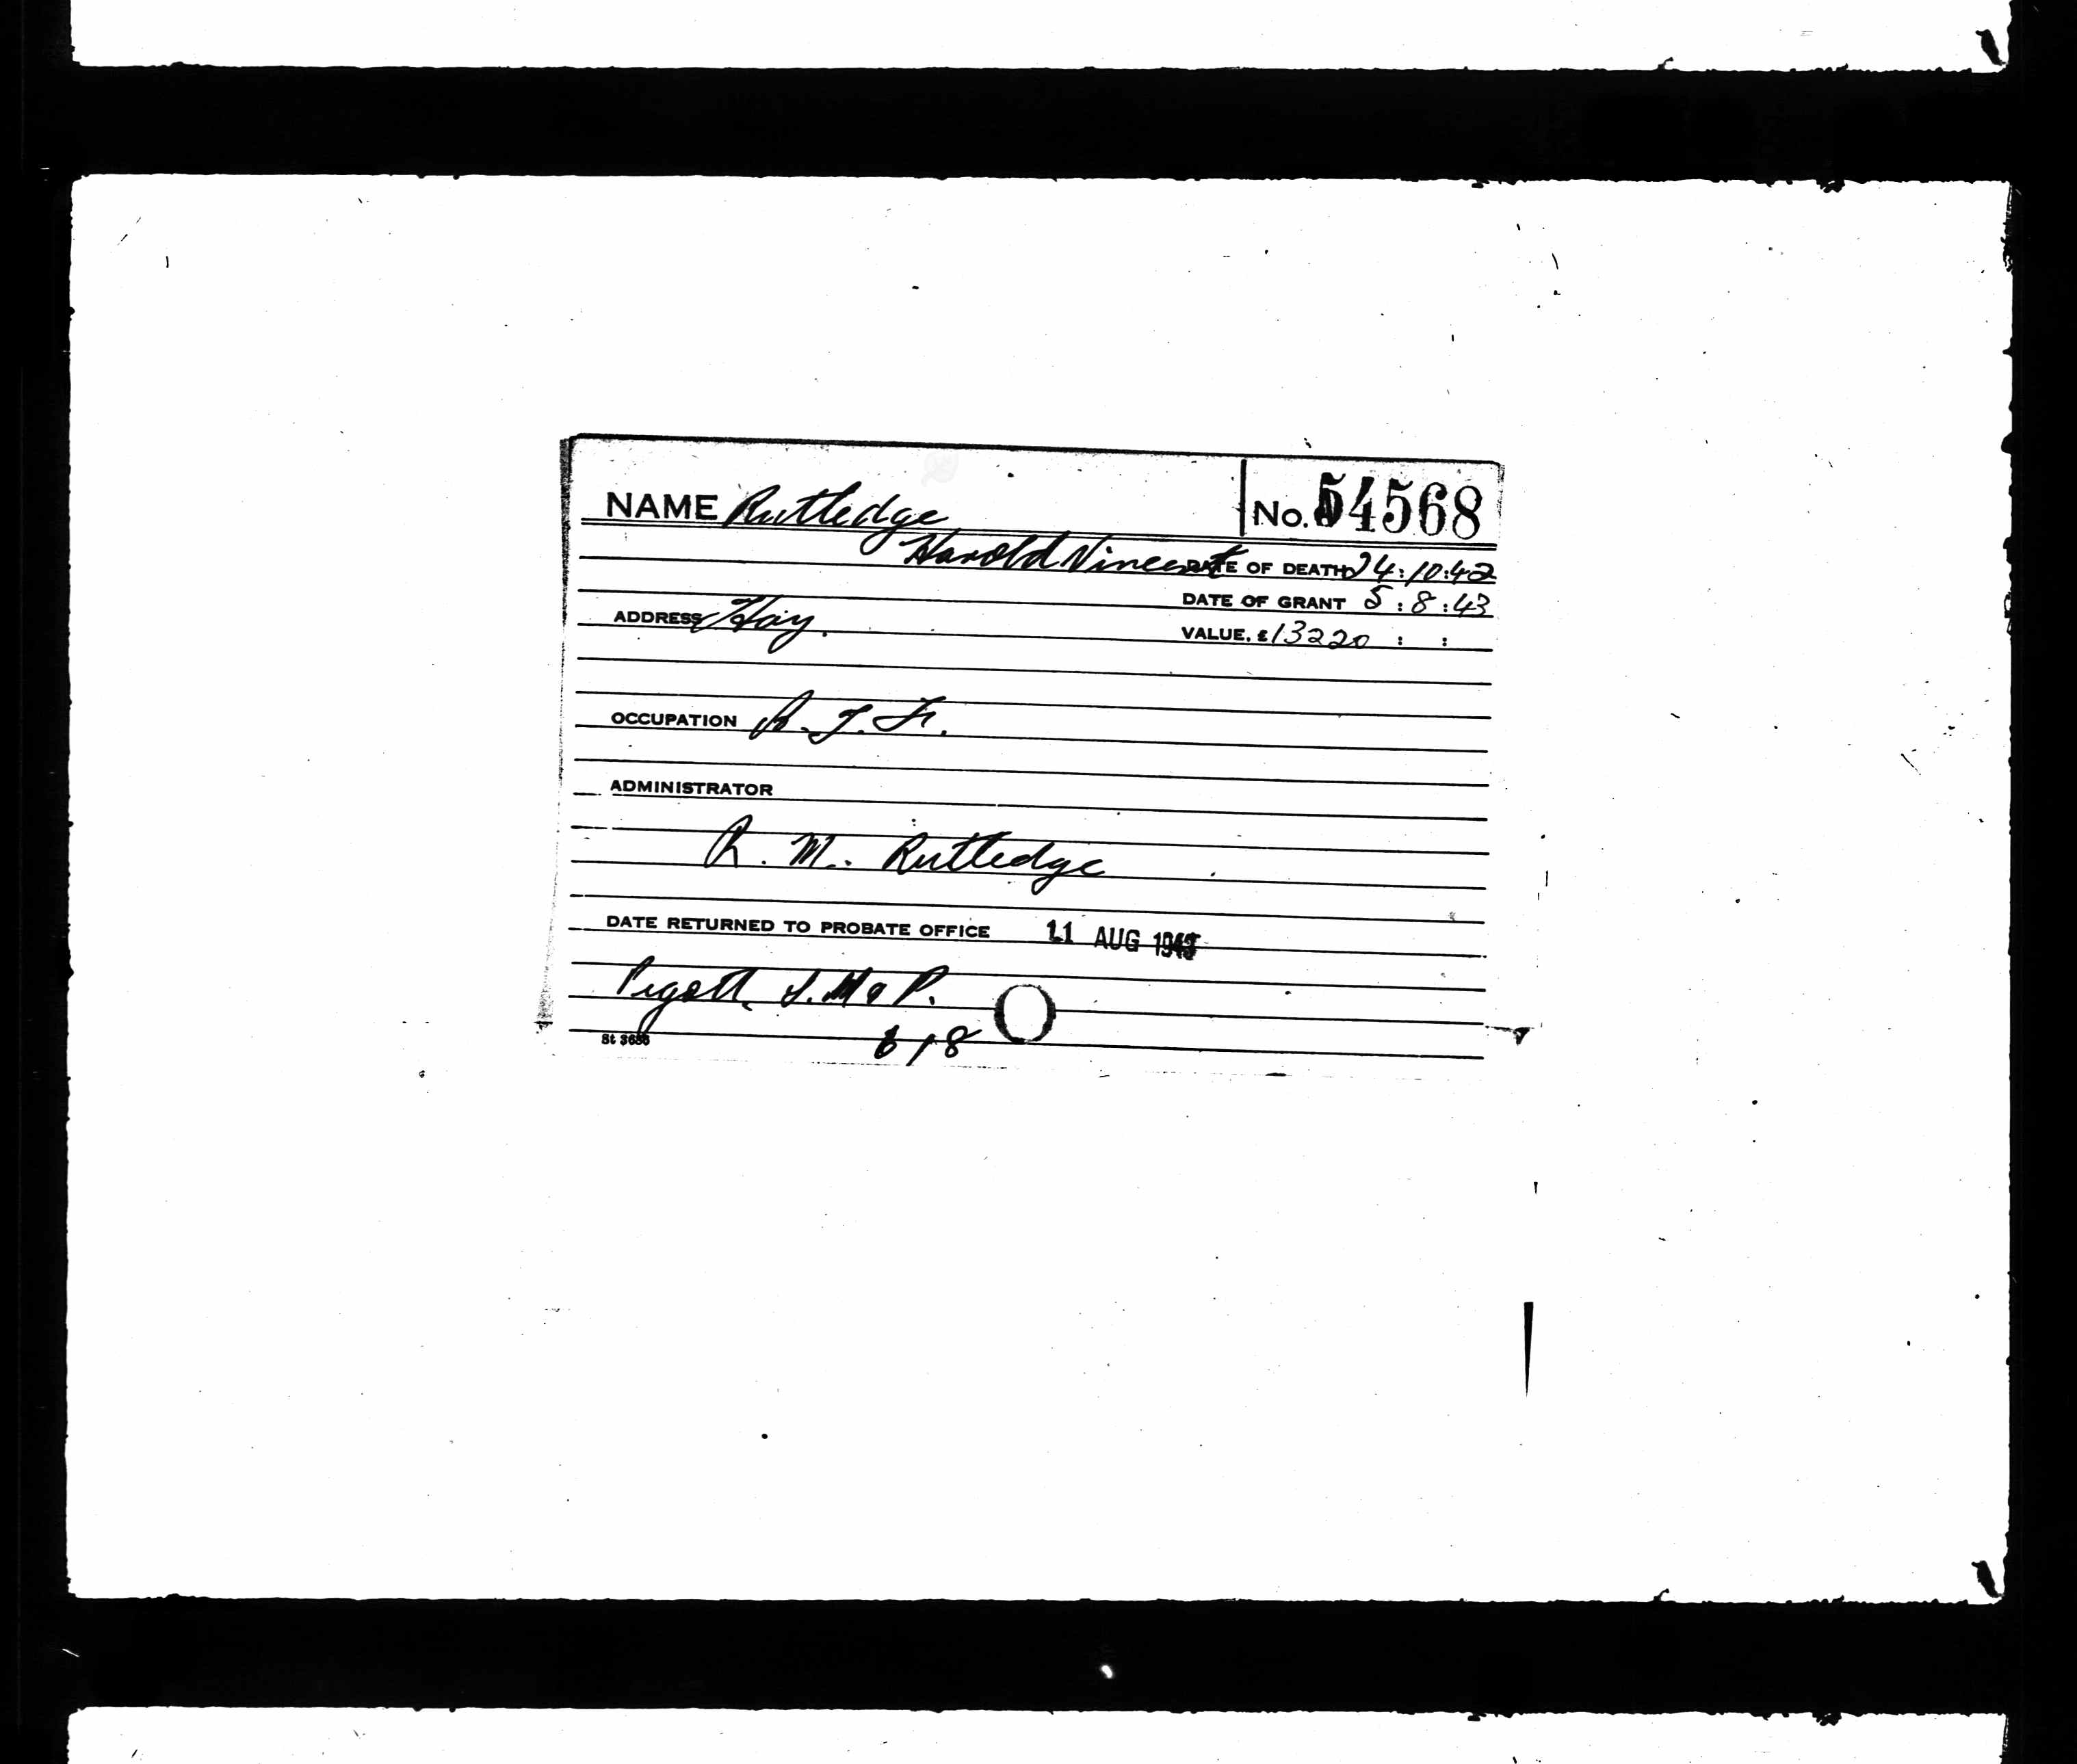 NAME Rutledge No. 54568
Harold Vincent DATE OF DEATH 24:10:42
DATE OF GRANT 5:8:43
ADDRESS Hay. VALUE, £13220 : :
OCCUPATION
ADMINISTRATOR
R. M. Rutledge
DATE RETURNED TO PROBATE OFFICE 11 AUG 1943
Pigott,
St